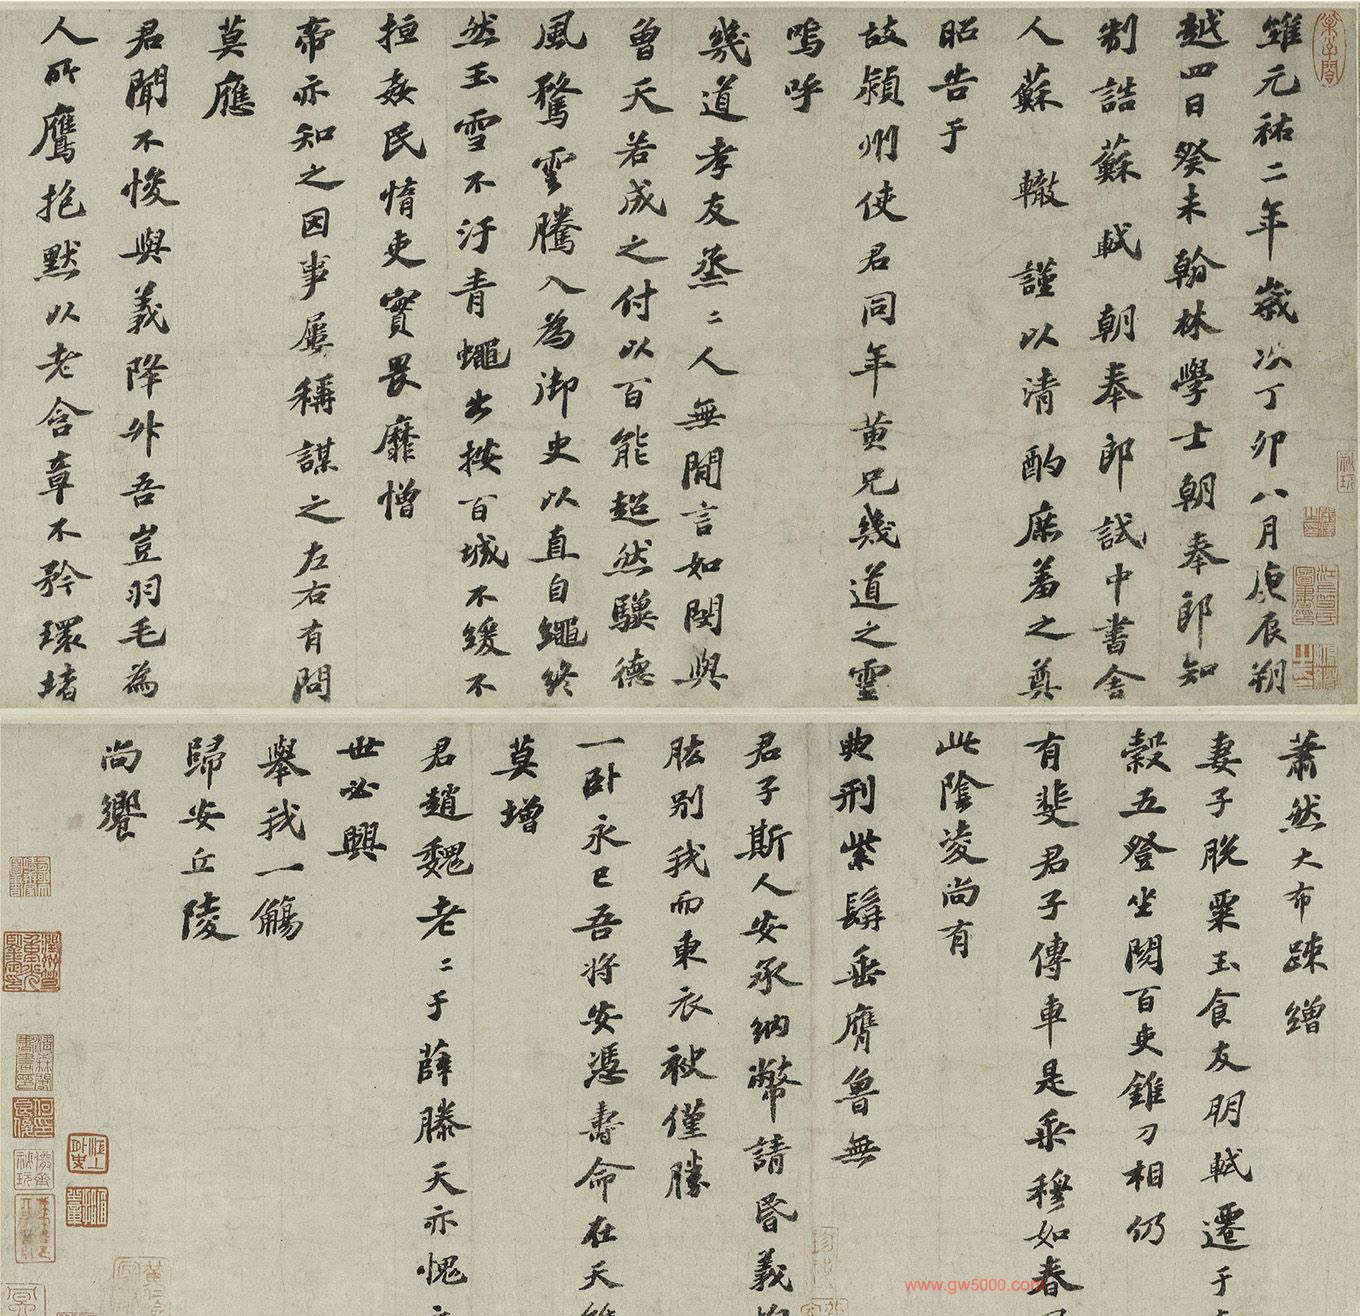 維元祐二年歲次丁卯八月庚辰朔
越四日癸未翰林學士朝奉郎知
制誥蘇軾朝奉郎試中書舍
人蘇轍謹以清酌庶羞之奠
昭告于
故潁州使君同年黃兄幾道之靈
嗚呼
幾道孝友烝二人無間言如閔與
曾天若成之付以百能超然驥德
風騖雲騰入為御史以直自繩終
然玉雪不汙青蠅出按百城不緩不
抯姦民惰吏實畏靡憎
帝亦知之因事屢稱謀之左右有問
莫應
君聞不悛與義降升吾豈羽毛為
人所鷹抱默以老含章不矜環堵
蕭然大布疎繒
妻子脫粟玉食友朋軾遷于
穀五登坐閱百吏錐刀相仍
有斐君子傳車是乘穆如春
此陰凌尚有
典刑紫髯垂膺魯無
君子斯人安承納幣請昏義
肱別我而東衣袂僅勝
一臥永已吾將安憑壽命在天
莫增
君趙魏老二于薛滕天亦愧
世必興
舉我一觴
歸安丘陵
尚饗
www.gw5000.com